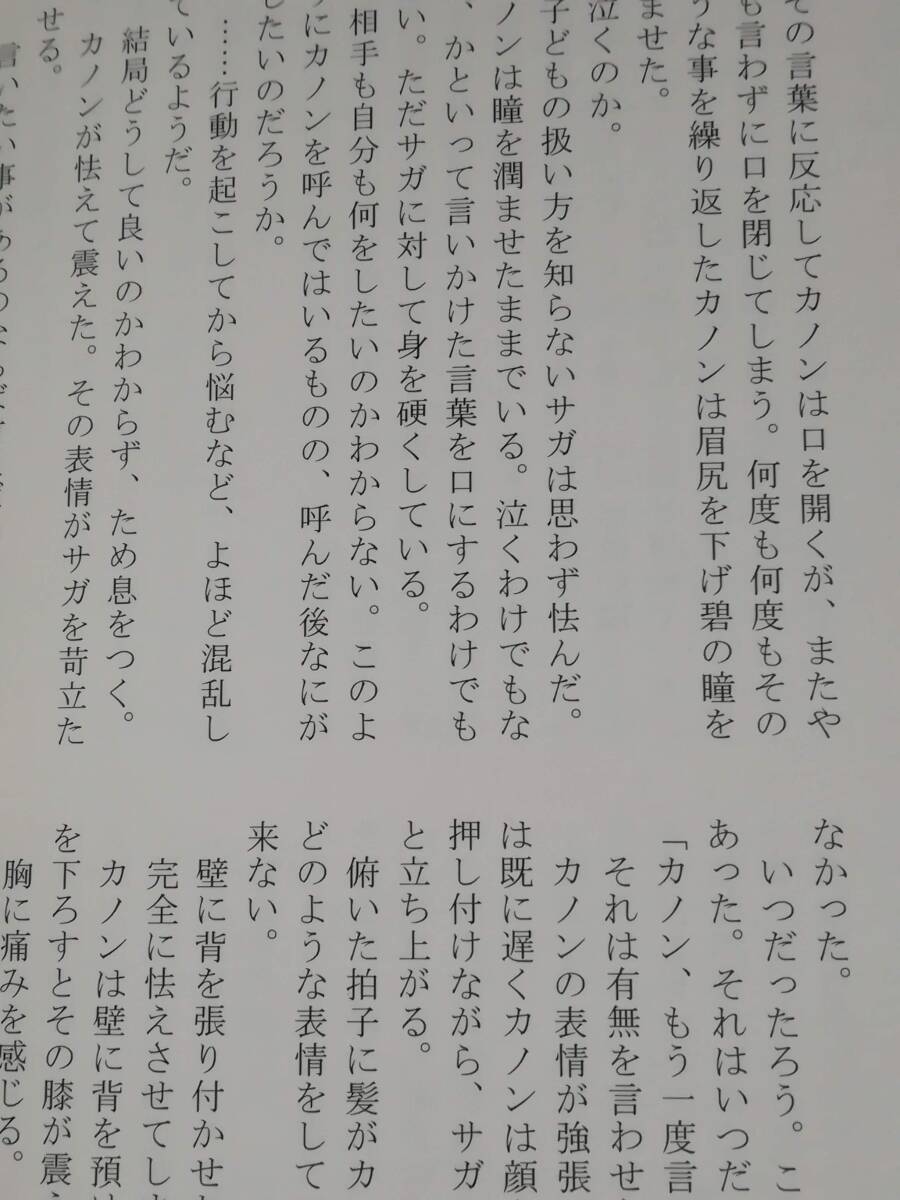 その言葉に反応してカノンは口を開くが、またや
も言わずに口を閉じてしまう。何度も何度もその
うな事を繰り返したカノンは眉尻を下げ碧の瞳を
ませた。
泣くのか。
子どもの扱い方を知らないサガは思わず怯んだ。
ノンは瞳を潤ませたままでいる。泣くわけでもな
、かといって言いかけた言葉を口にするわけでも
い。ただサガに対して身を硬くしている。
相手も自分も何をしたいのかわからない。このよ
うにカノンを呼んではいるものの、呼んだ後なにが
したいのだろうか。
……行動を起こしてから悩むなど、よほど混乱し
ているようだ。
結局どうして良いのかわからず、ため息をつく。
カノンが怯えて震えた。その表情がサガを苛立た
せる。
言いたい事があるのなら
なかった。
いつだったろう。こ
あった。それはいつだ
「カノン、もう一度言
それは有無を言わせ
カノンの表情が強張
は既に遅くカノンは顔
押し付けながら、サガ
と立ち上がる。
俯いた拍子に髪がカ
どのような表情をして
来ない。
壁に背を張り付かせ
完全に怯えさせてし
カノンは壁に背を預け
を下ろすとその膝が震え
胸に痛みを感じる。